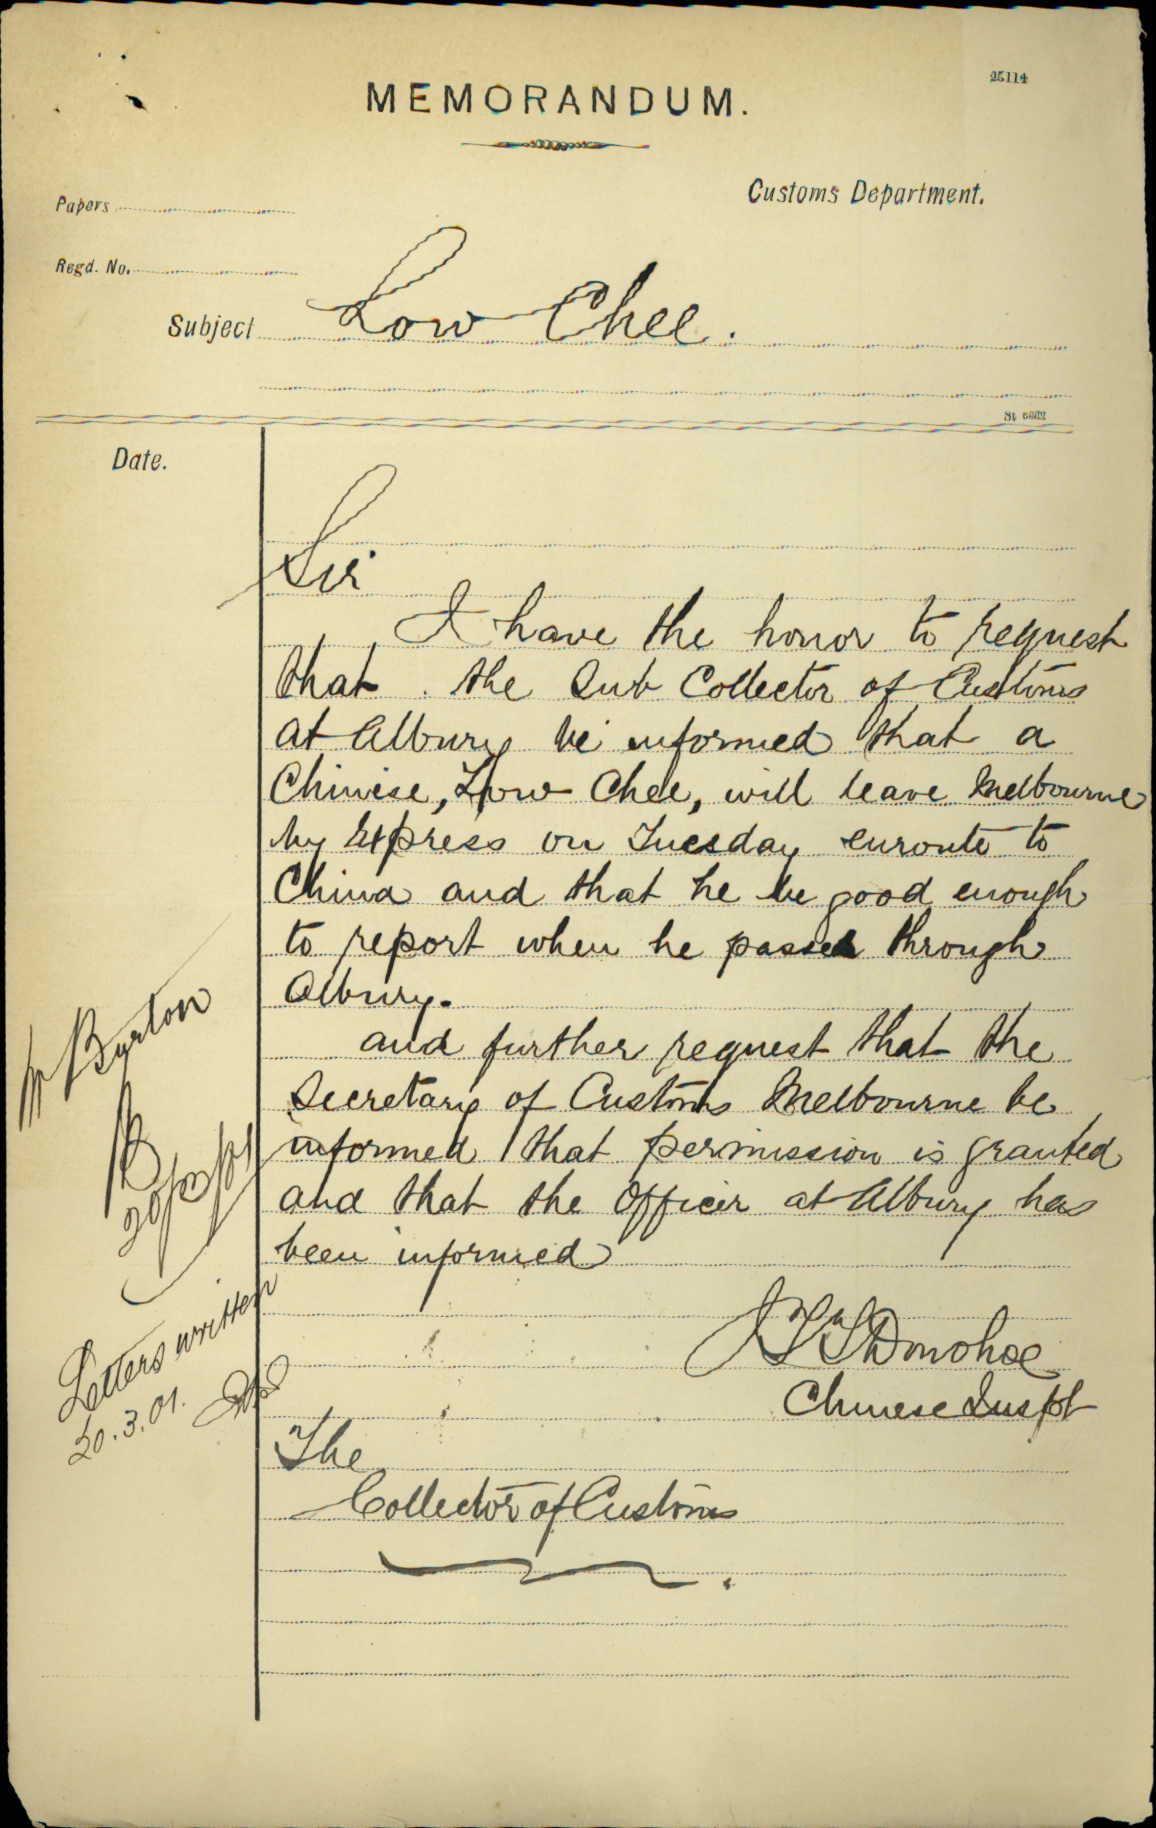 25114
MEMORANDUM.
Customs Department.
Papers
Regd. No.
Subject Low Chee.
Date.
Sir
I have the honor to request
that . the Sub Collector of Customs
at Albury be informed that a
Chinese, Low Chee, will leave Melbourne
by Express on Tuesday enroute to
China and that he be good enough
to report when he passes through
Albury.
and further request that the
Secretary of Customs Melbourne be
informed that permission is granted
and that the Officer at Albury has
been informed
Donohoe
Chinese Inspt
The
Collector of Customs
Mr Barton
20/3/01
Letters written
20.3.01.